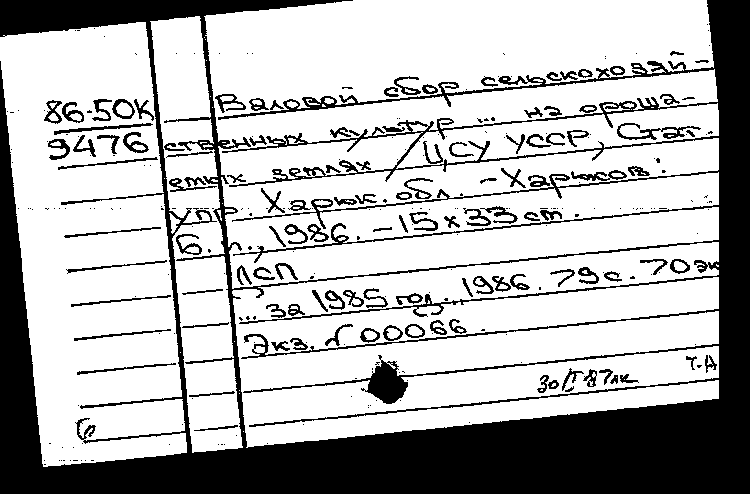 86-50К
9476
Валовой сбор сельскохозяй-
ственных культур ... на ороша-
емых землях / ЦСУ УССР, Стат.
упр. Харьк. обл. - Харьков:
Б. и., 1986. - 15 x 33 см.
ЛСП.
... за 1985 год ... 1986. 79 с. 70 эк
Экз. № 00066.
30/I 87